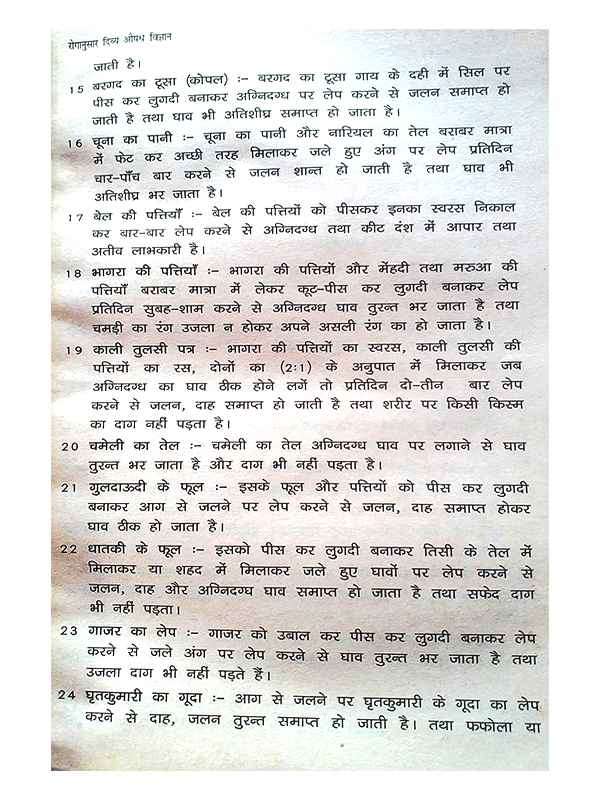 रोगानुसार दिव्य औषध विज्ञान
जाती है।
15 बरगद का टूसा (कोपल) :– बरगद का टूसा गाय के दही में सिल पर
पीस कर लुगदी बनाकर अग्निदग्ध पर लेप करने से जलन समाप्त हो
जाती है तथा घाव भी अतिशीघ्र समाप्त हो जाता है।
16 चूना का पानी :– चूना का पानी और नारियल का तेल बराबर मात्रा
में फेट कर अच्छी तरह मिलाकर जले हुए अंग पर लेप प्रतिदिन
चार–पाँच बार करने से जलन शान्त हो जाती है तथा घाव भी
अतिशीघ्र भर जाता है।
17 बेल की पत्तियाँ :– बेल की पत्तियों को पीसकर इनका स्वरस निकाल
कर बार–बार लेप करने से अग्निदग्ध तथा कीट दंश में आपार तथा
अतीव लाभकारी है।
18 भागरा की पत्तियाँ :– भागरा की पत्तियों और मेंहदी तथा मरुआ की
पत्तियाँ बराबर मात्रा में लेकर कूट–पीस कर लुगदी बनाकर लेप
प्रतिदिन सुबह–शाम करने से अग्निदग्ध घाव तुरन्त भर जाता है तथा
चमड़ी का रंग उजला न होकर अपने असली रंग का हो जाता है।
19 काली तुलसी पत्र :– भागरा की पत्तियों का स्वरस, काली तुलसी की
पत्तियों का रस, दोनों का (2:1) के अनुपात में मिलाकर जब
अग्निदग्ध का घाव ठीक होने लगें तो प्रतिदिन दो–तीन बार लेप
करने से जलन, दाह समाप्त हो जाती है तथा शरीर पर किसी किस्म
का दाग नहीं पड़ता है।
20 चमेली का तेल :– चमेली का तेल अग्निदग्ध घाव पर लगाने से घाव
तुरन्त भर जाता है और दाग भी नहीं पड़ता है।
21 गुलदाऊदी के फूल :– इसके फूल और पत्तियों को पीस कर लुगदी
बनाकर आग से जलने पर लेप करने से जलन, दाह समाप्त होकर
घाव ठीक हो जाता है।
22 धातकी के फूल :– इसको पीस कर लुगदी बनाकर तिसी के तेल में
मिलाकर या शहद में मिलाकर जले हुए घावों पर लेप करने से
जलन, दाह और अग्निदग्ध घाव समाप्त हो जाता है तथा सफेद दाग
भी नहीं पड़ता।
23 गाजर का लेप :– गाजर को उबाल कर पीस कर लुगदी बनाकर लेप
करने से जले अंग पर लेप करने से घाव तुरन्त भर जाता है तथा
उजला दाग भी नहीं पड़ते हैं।
24 घृतकुमारी का गूदा :– आग से जलने पर घृतकुमारी के गूदा का लेप
करने से दाह, जलन तुरन्त समाप्त हो जाती है। तथा फफोला या